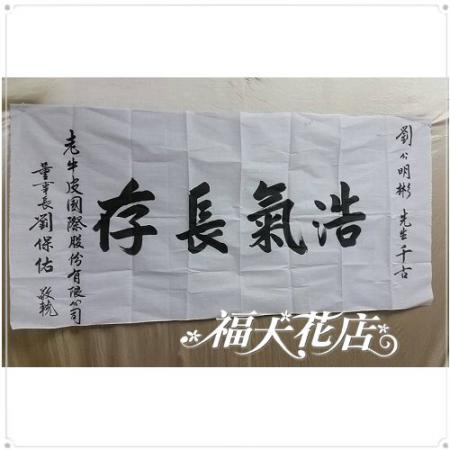 劉公明彬先生千古
浩氣長存
老牛皮國際股份有限公司
董事長劉保佑 敬輓
福天花店